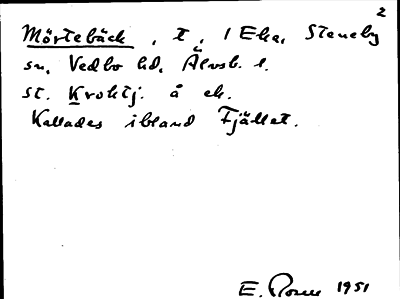 2
Mörtebäck, t, 1 Eka, Steneby
sn, Vedbo hd, Älvsb. l.
st. Kroktj. å ek.
Kallades ibland Fjället.
E. 1951